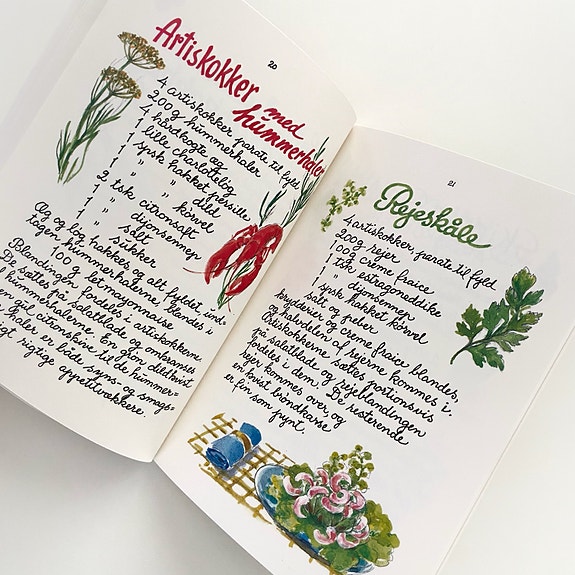 20
Artiskokker
med
hummerhaler
4 artiskokker parate til fyld
200 g hummerhaler
4 hårdkogte æg
1 lille charlotteløg
1 spsk hakket persille
1 " " dild
1 " " kørvel
2 tsk citronsaft
1 " dijonsennep
1 " salt
1 " sukker
100 g let mayonnaise
Æg og løg hakkes og alt fyldet und-
tagen hummerhalerne blandes.
Blandingen fordeles i artiskokkerne
De sættes på salatblade og omkranses
hummerhalerne. En grøn dildkvist
en gul citronskive til de hummer-
haler er både syns- og smags-
rigtige appetitvækkere.
21
Rejeskåle
4 artiskokker parate til fyld
200 g rejer
100 g creme fraice
1 tsk estragoneddike
1 " dijonsennep
1 spsk hakket kørvel
salt og peber
krydderier og creme fraice blandes,
og halvdelen af rejerne kommes i.
Artiskokkerne sættes portionsvis
på salatblade og rejeblandingen
fordeles i dem. De resterende
rejer kommes over og
en kvist brøndkarse
er fin som pynt.